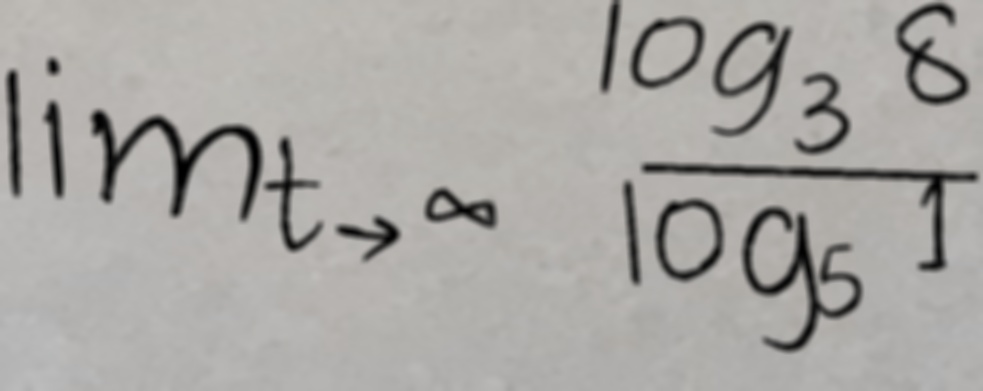 lim_{t→∞} \frac{log_3 8}{log_5 1}